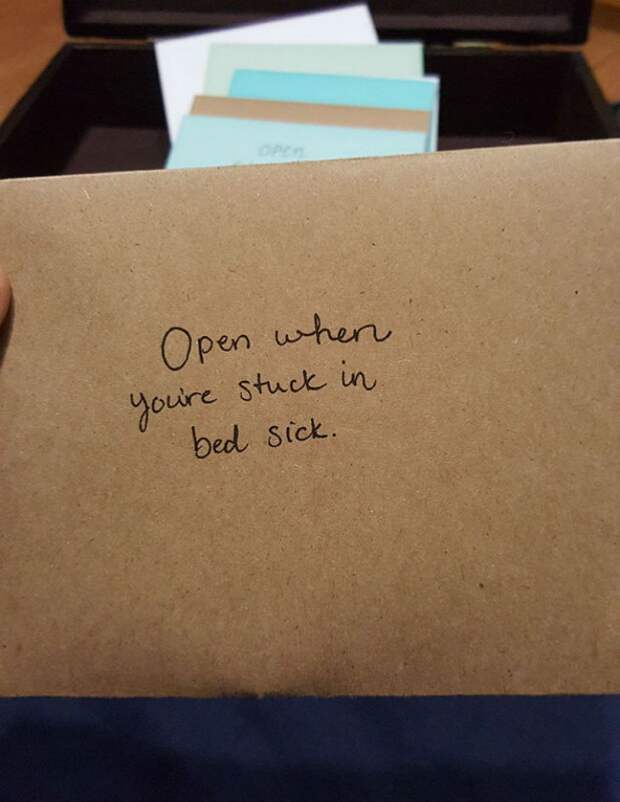 OPEN
Open when
you're stuck in
bed sick.